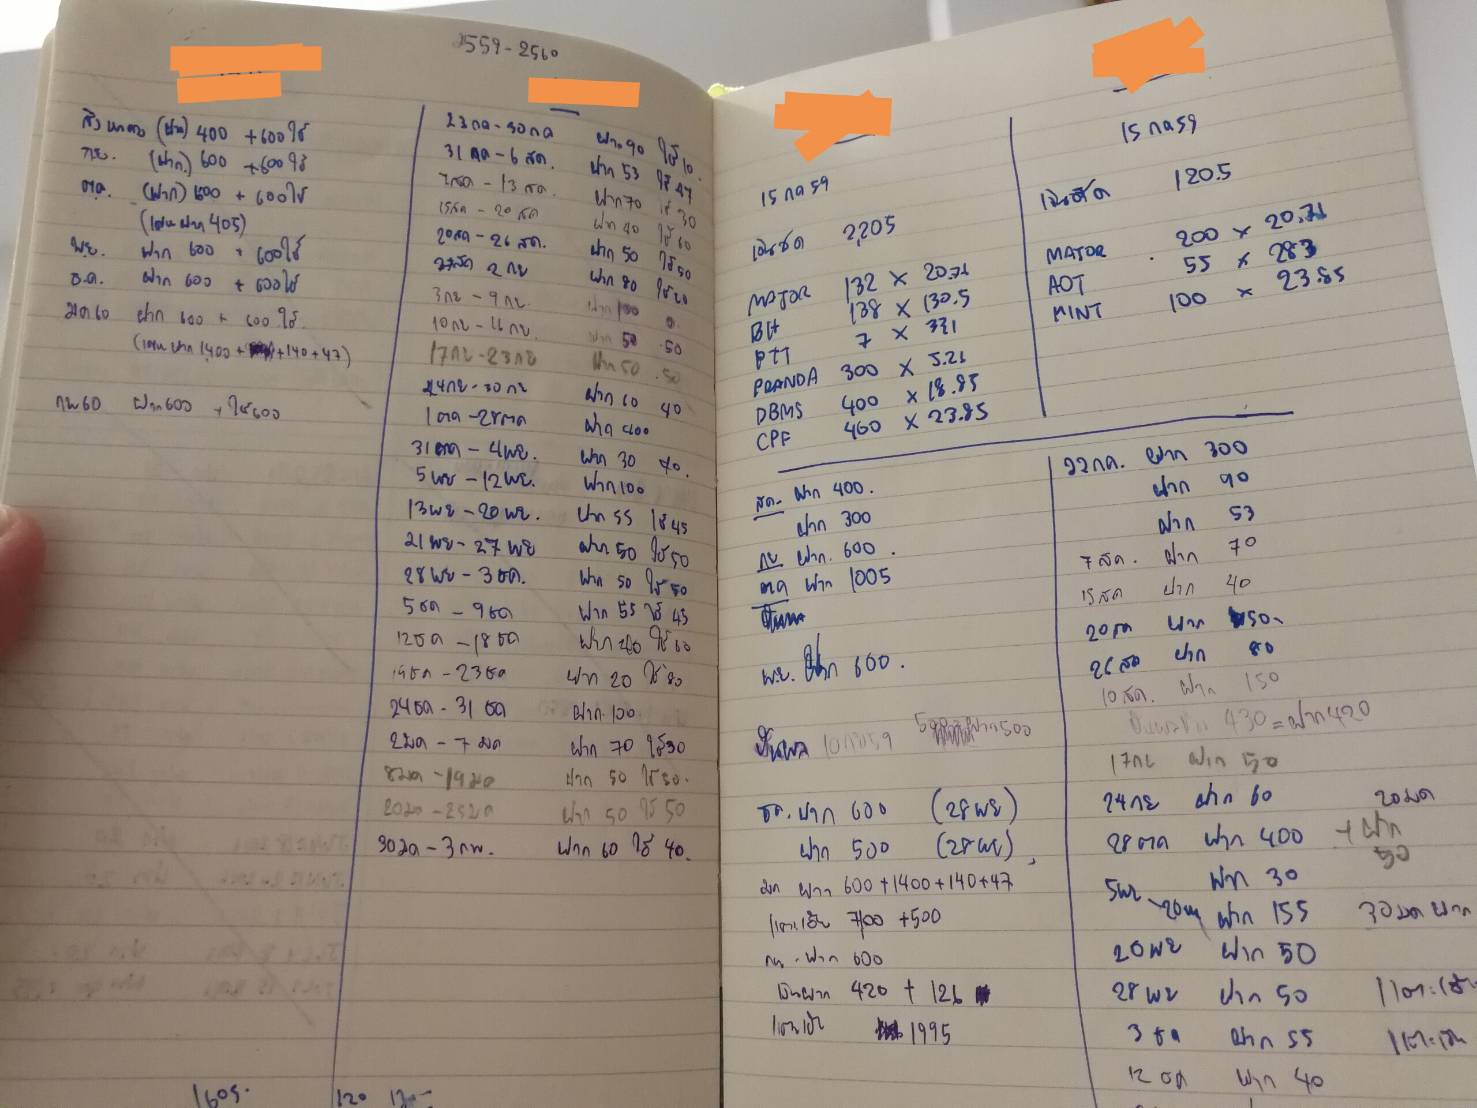 2559-2560
สิงหาคม (ฝาก) 400 + 600 ใช้
กย. (ฝาก) 600 + 600 ใช้
ตค. (ฝาก) 600 + 600 ใช้
405)
พ.ย. ฝาก 600 + 600 ใช้
ธ.ค. ฝาก 600 + 600 ใช้
มค60 ฝาก 600 + 600 ใช้
1,400 + +140+47)
กพ60 ฝาก 600 + ใช้600
1605.
23 กค - 30 กค ฝาก 90 ใช้ 10.
31 กค - 6 สค. ฝาก 53 ใช้ 47
7สค - 13 สค. ฝาก 70 ใช้ 30
15สค - 20 สค ฝาก 40 ใช้ 60
20สค - 26 สค. ฝาก 50 ใช้ 50
27สค 2 กย ฝาก 80 ใช้ 20
3กย - 9 กย. ฝาก 100 0.
10กย - 16 กย. ฝาก 50 50
17กย - 23 กย ฝาก 50 50
24กย - 30 กย ฝาก 60 40
1 ตค - 28 ตค ฝาก 400
31 ตค - 4 พย. ฝาก 30 70.
5 พย - 12 พย. ฝาก 100
13 พย - 20 พย. ฝาก 55 ใช้ 45
21 พย - 27 พย ฝาก 50 ใช้ 50
28 พย - 3 ธค. ฝาก 50 ใช้ 50
5 ธค - 9 ธค ฝาก 55 ใช้ 45
12 ธค - 18 ธค ฝาก 40 ใช้ 60
19 ธค - 23 ธค ฝาก 20 ใช้ 80
24 ธค - 31 ธค ฝาก 100
2 มค - 7 มค ฝาก 70 ใช้ 30
8 มค - 14 มค ฝาก 50 ใช้ 50.
20 มค - 25 มค ฝาก 50 ใช้ 50
30 มค - 3 กพ. ฝาก 60 ใช้ 40.
120
15 กค 59
เงินสด 2,205
MAJOR 132 × 20.71
BH 138 × 130.5
PTT 7 × 331
PRANDA 300 × 5.21
DBMS 400 × 18.85
CPF 460 × 23.85
สค. ฝาก 400.
ฝาก 300
กย ฝาก. 600.
ตค ฝาก 1005
พ.ย. ฝาก 600.
ปันผล 10 กย 59 ฝาก 500
ธค. ฝาก 600 (28 พย)
ฝาก 500 (28 พย)
มค ฝาก 600+1400+140+47
แตะเอีย 700 +500
กพ. ฝาก 600
ปันผล 420 + 126
แตะเอีย 1995
15 กค 59
เงินสด 120.5
MAJOR 200 × 20.71
AOT 55 × 283
MINT 100 × 23.85
22 กค. ฝาก 300
ฝาก 90
ฝาก 53
7 สค. ฝาก 70
15 สค ฝาก 40
20 สค ฝาก 50.
26 สค ฝาก 80
10 สค. ฝาก 150
430 = ฝาก 420
17 กย ฝาก 50
24 กย ฝาก 60 20 มค
28 ตค ฝาก 400 + ฝาก
50
5 พย ฝาก 30
- 20 พย ฝาก 155 30 มค ฝาก
20 พย ฝาก 50
28 พย ฝาก 50 แตะเอีย
3 ธค ฝาก 55 แตะเอีย
12 ธค ฝาก 40